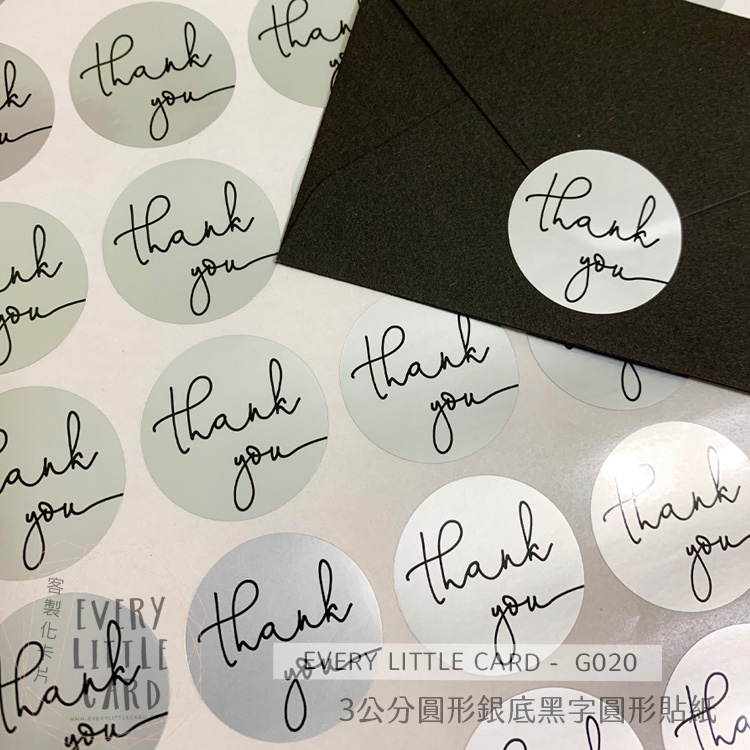 than
thank
you
k
u
thank
you
thank
you
nk
you
thank
you
thank
you
ank
you
thank
you
thank
you
thank
you
thank
you
thank
you
客製化卡片
EVERY
LITTLE
CARD
WWW.EVERYLITTLECARD
EVERY LITTLE CARD - G020
3公分圓形銀底黑字圓形貼紙